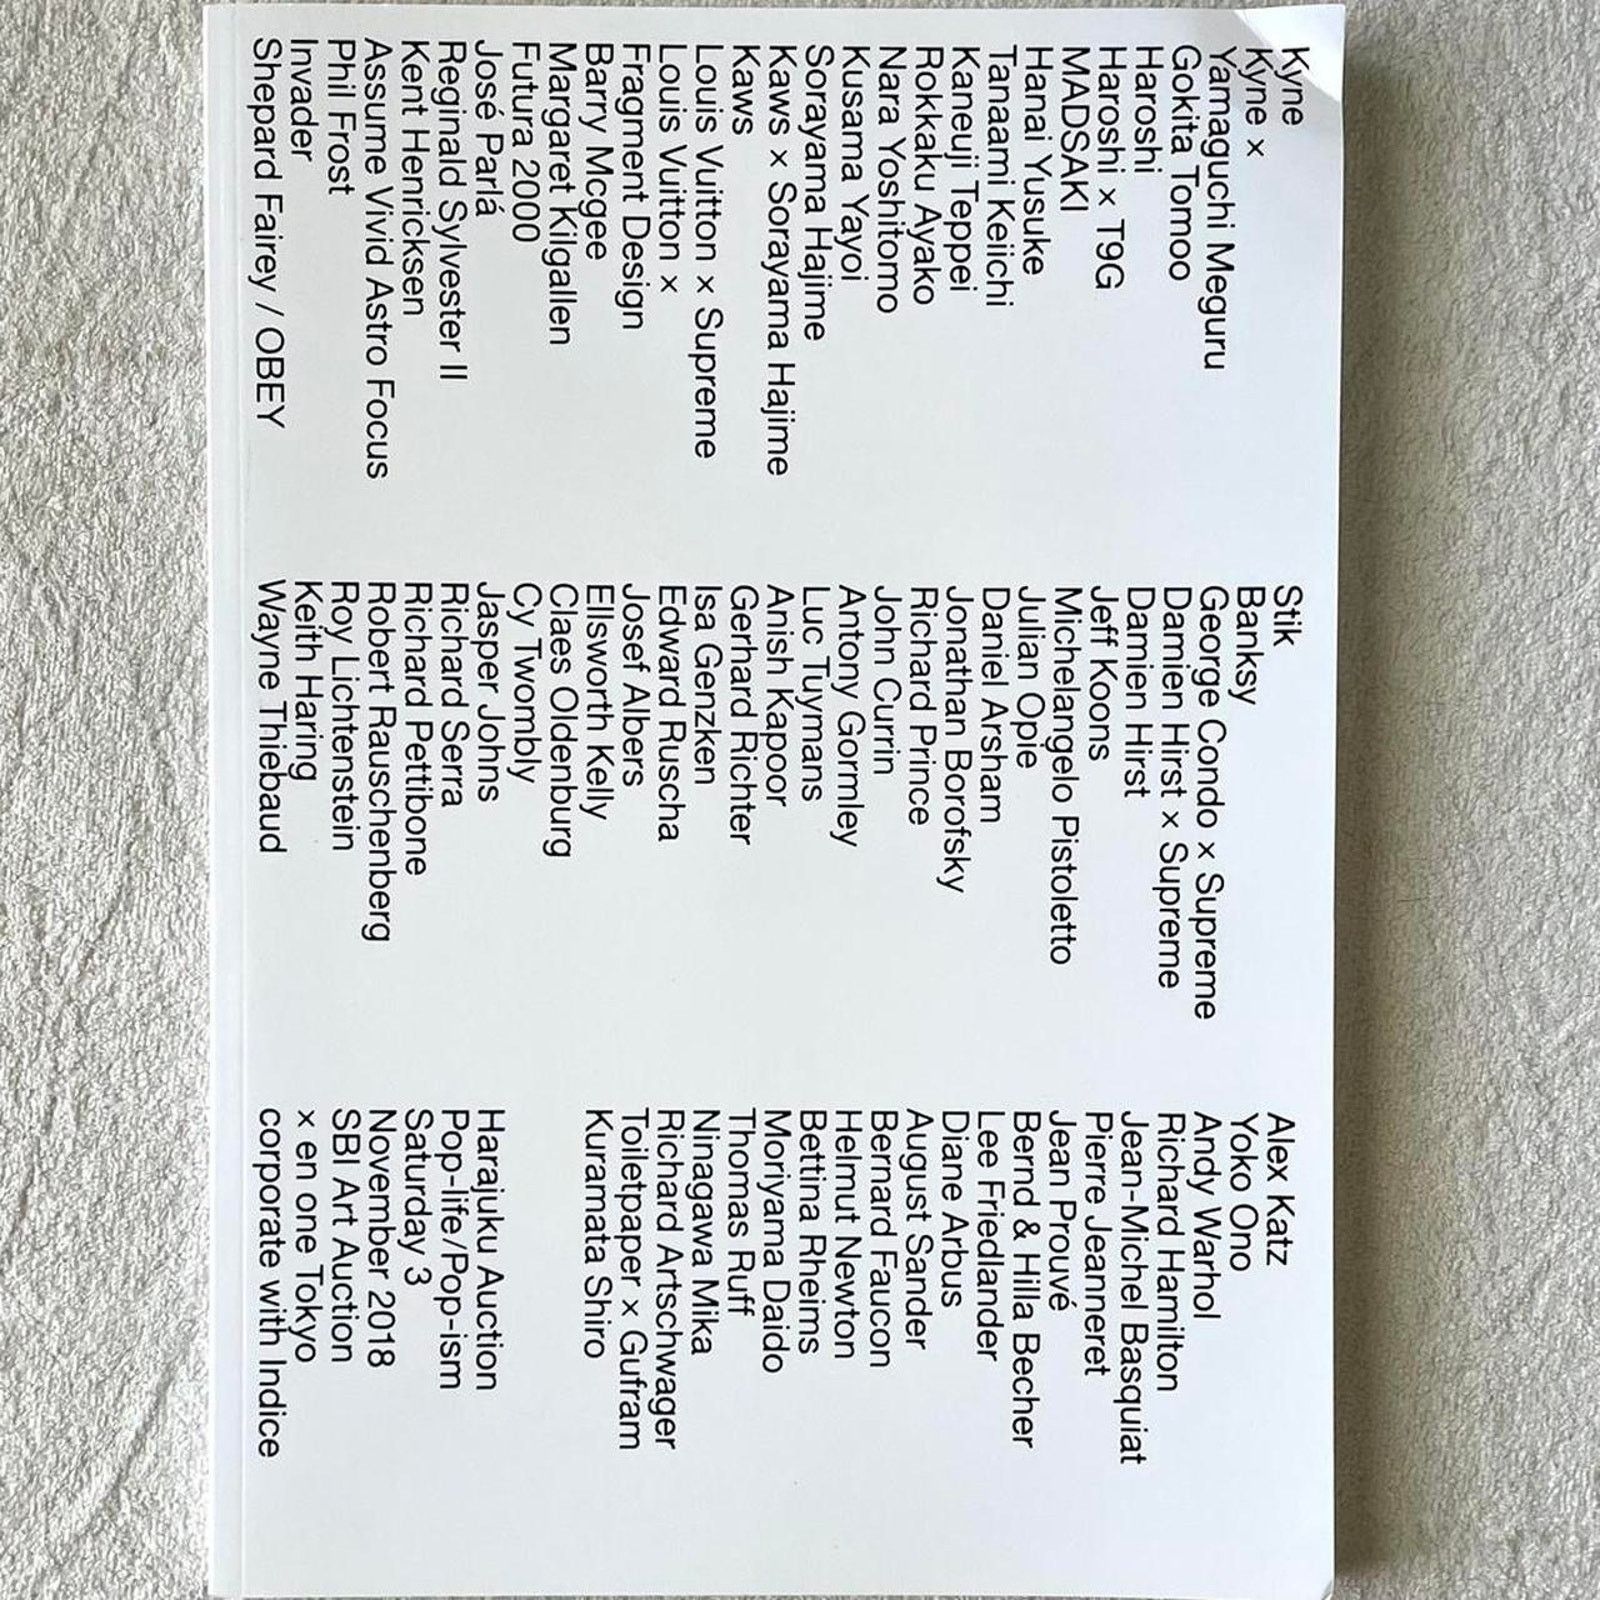 Kyne
Kyne ×
Yamaguchi Meguru
Gokita Tomoo
Haroshi
Haroshi × T9G
MADSAKI
Hanai Yusuke
Tanaami Keiichi
Kaneuji Teppei
Rokkaku Ayako
Nara Yoshitomo
Kusama Yayoi
Sorayama Hajime
Kaws × Sorayama Hajime
Kaws
Louis Vuitton × Supreme
Louis Vuitton ×
Fragment Design
Barry Mcgee
Margaret Kilgallen
Futura 2000
José Parlá
Reginald Sylvester II
Kent Henricksen
Assume Vivid Astro Focus
Phil Frost
Invader
Shepard Fairey / OBEY
Stik
Banksy
George Condo × Supreme
Damien Hirst × Supreme
Damien Hirst
Jeff Koons
Michelangelo Pistoletto
Julian Opie
Daniel Arsham
Jonathan Borofsky
Richard Prince
John Currin
Antony Gormley
Luc Tuymans
Anish Kapoor
Gerhard Richter
Isa Genzken
Edward Ruscha
Josef Albers
Ellsworth Kelly
Claes Oldenburg
Cy Twombly
Jasper Johns
Richard Serra
Richard Pettibone
Robert Rauschenberg
Roy Lichtenstein
Keith Haring
Wayne Thiebaud
Alex Katz
Yoko Ono
Andy Warhol
Richard Hamilton
Jean-Michel Basquiat
Pierre Jeanneret
Jean Prouvé
Bernd & Hilla Becher
Lee Friedlander
Diane Arbus
August Sander
Bernard Faucon
Helmut Newton
Bettina Rheims
Moriyama Daido
Thomas Ruff
Ninagawa Mika
Richard Artschwager
Toiletpaper × Gufram
Kuramata Shiro
Harajuku Auction
Pop-life/Pop-ism
Saturday 3
November 2018
SBI Art Auction
× en one Tokyo
corporate with Indice